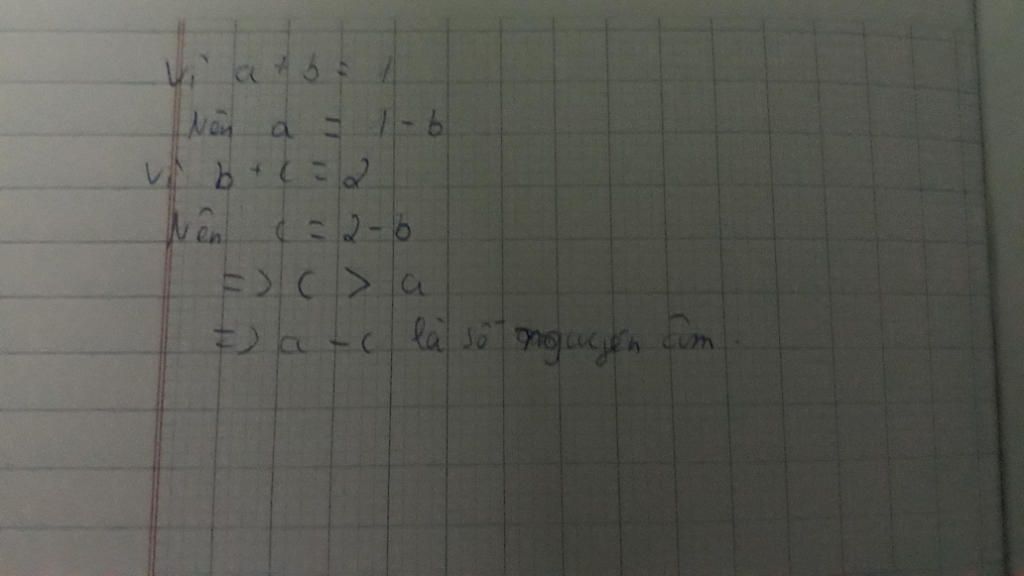 Vì a + b = 1
Nên a = 1 - b
Vì b + c = 2
Nên c = 2 - b
=> c > a
=> a - c là số nguyên âm.